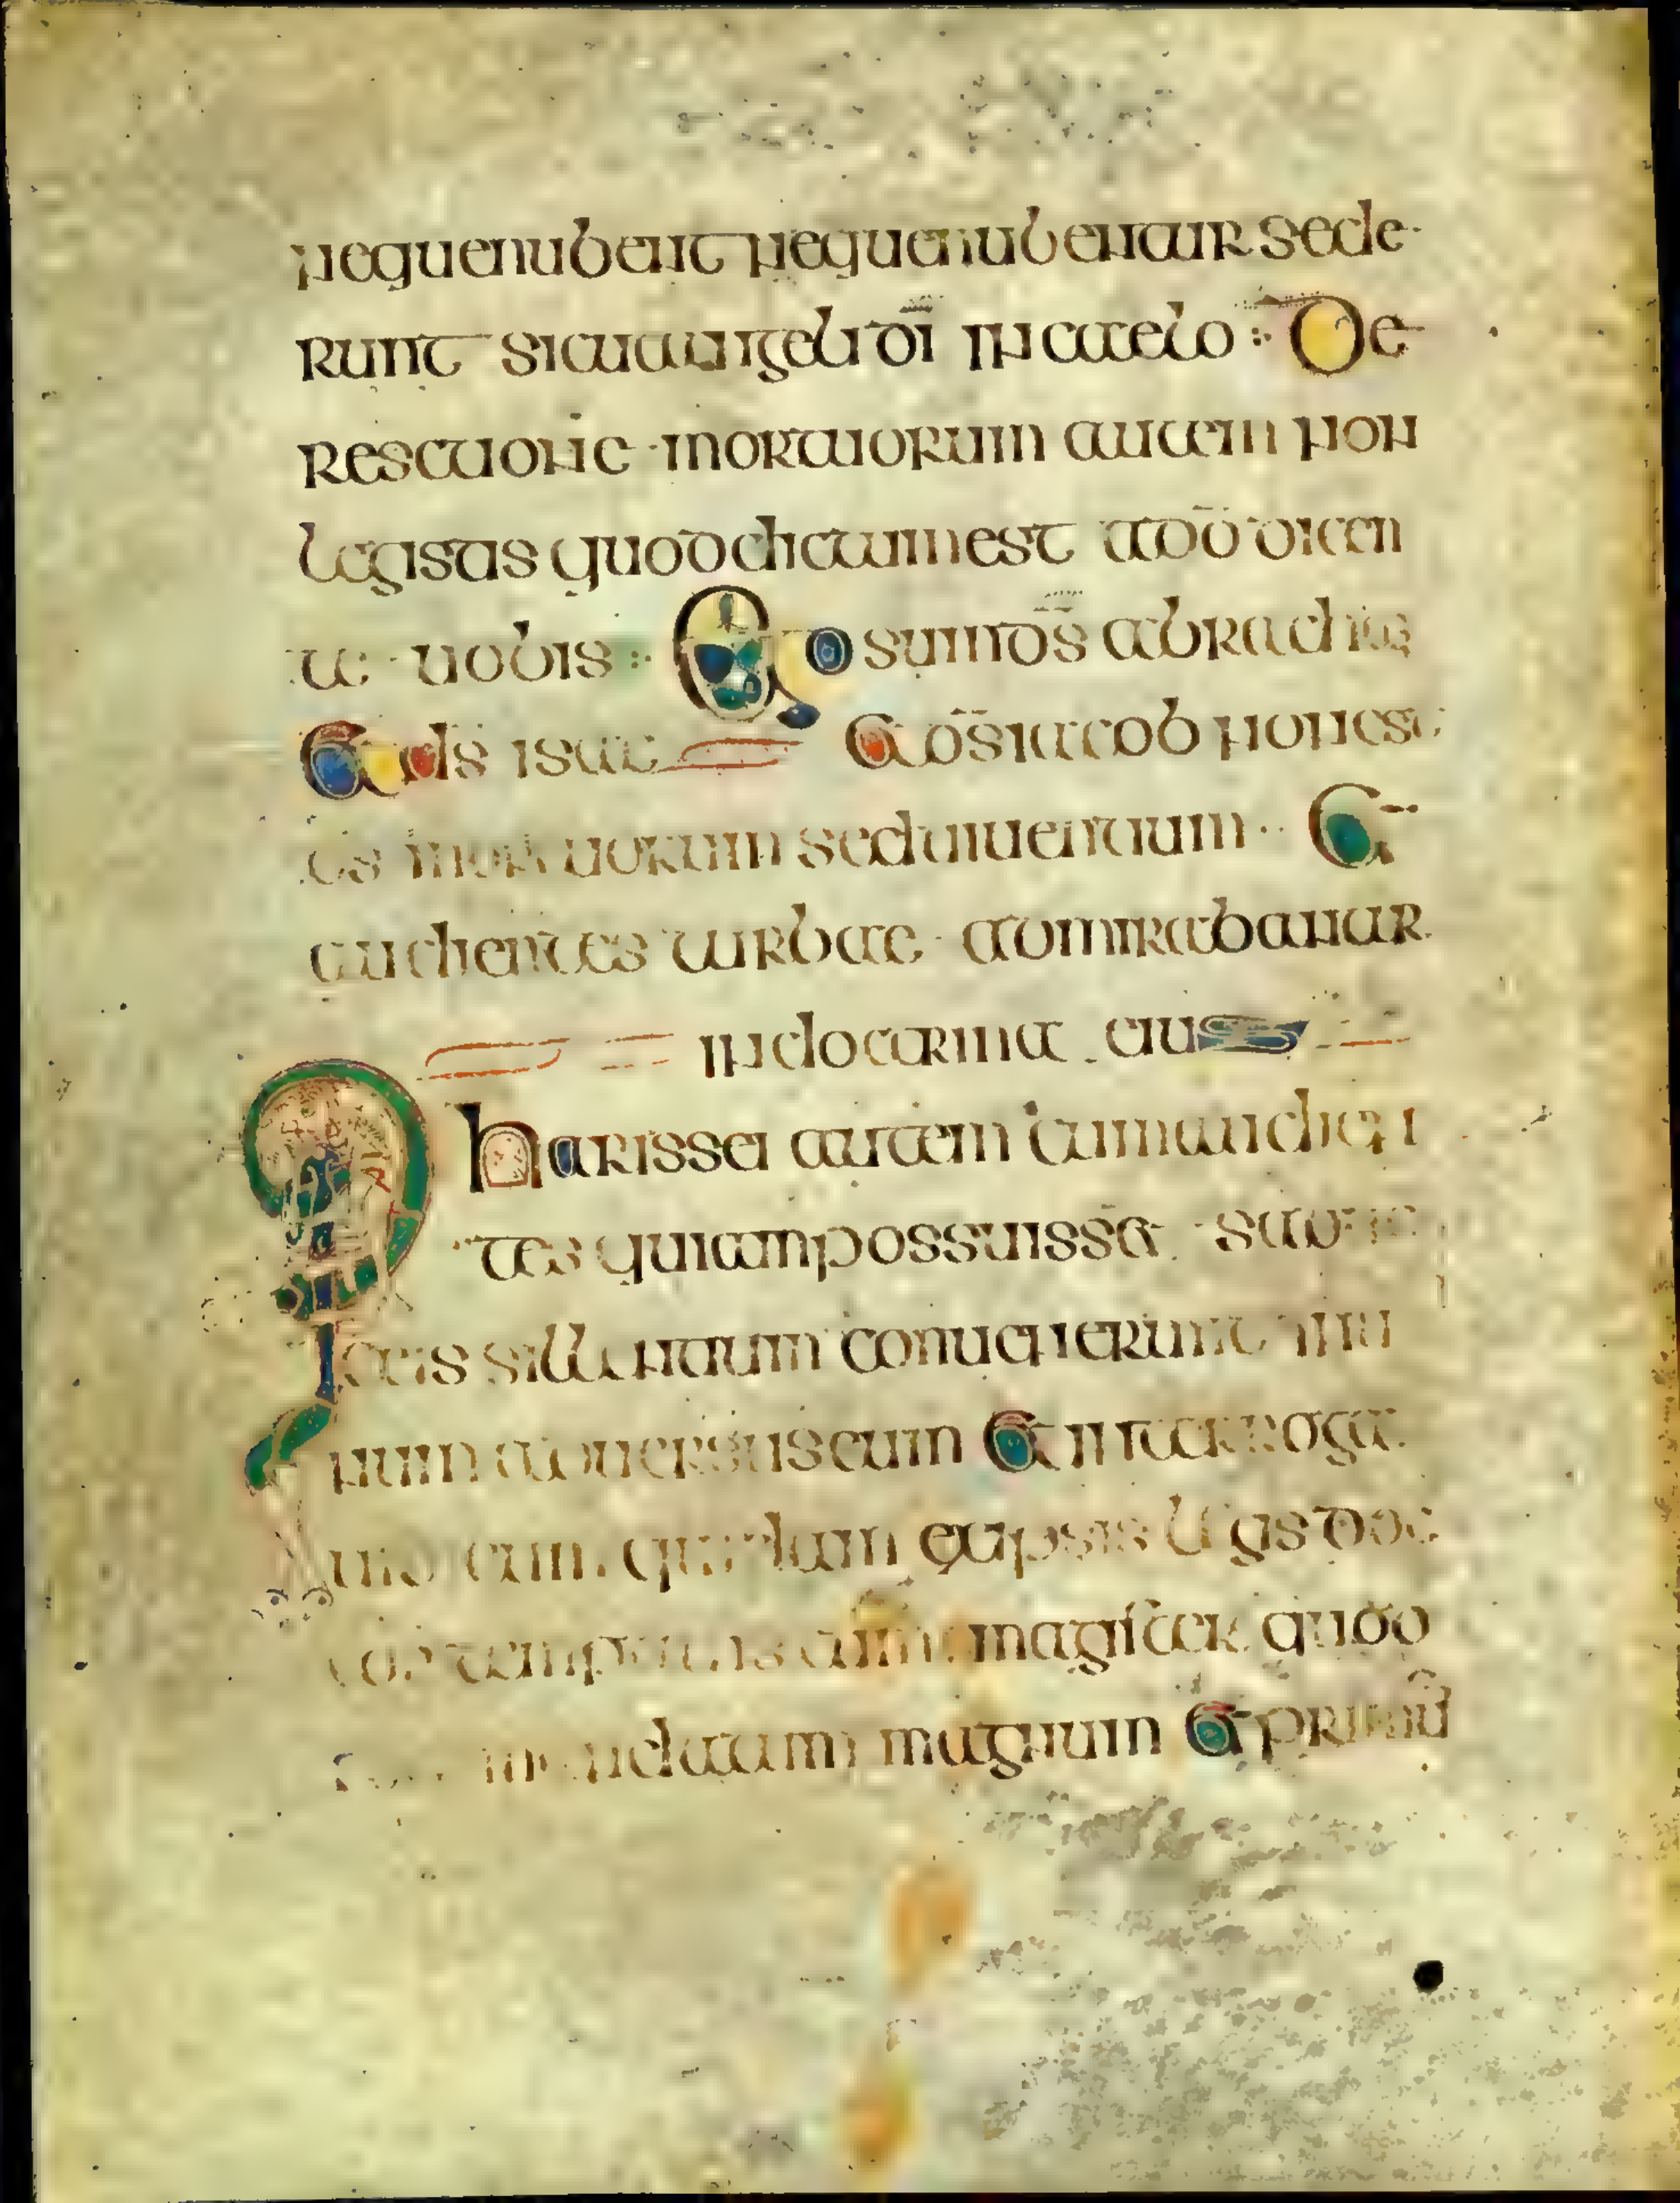 nequenubent nequenubentur sede
runt sicutangeli dī in caelo : De
resctione mortuorum autem non
legistis quoddictumest ado dicen
te uobis : Ego sum ds abracham
Et ds isac Et ds iacob nonest
ds mortuorum seduiuentium Et
audientes turbae admirabantur
indoctrina eius
Pharissei autem cumaudien
tes quiainpossuisset sadu
ceis sillentium conuenierunt inu
num aduersuseum Et interroga
uit eum quidam exipsis legis doc
tor temptans eum magister quod
est mandatum magnum Et primū